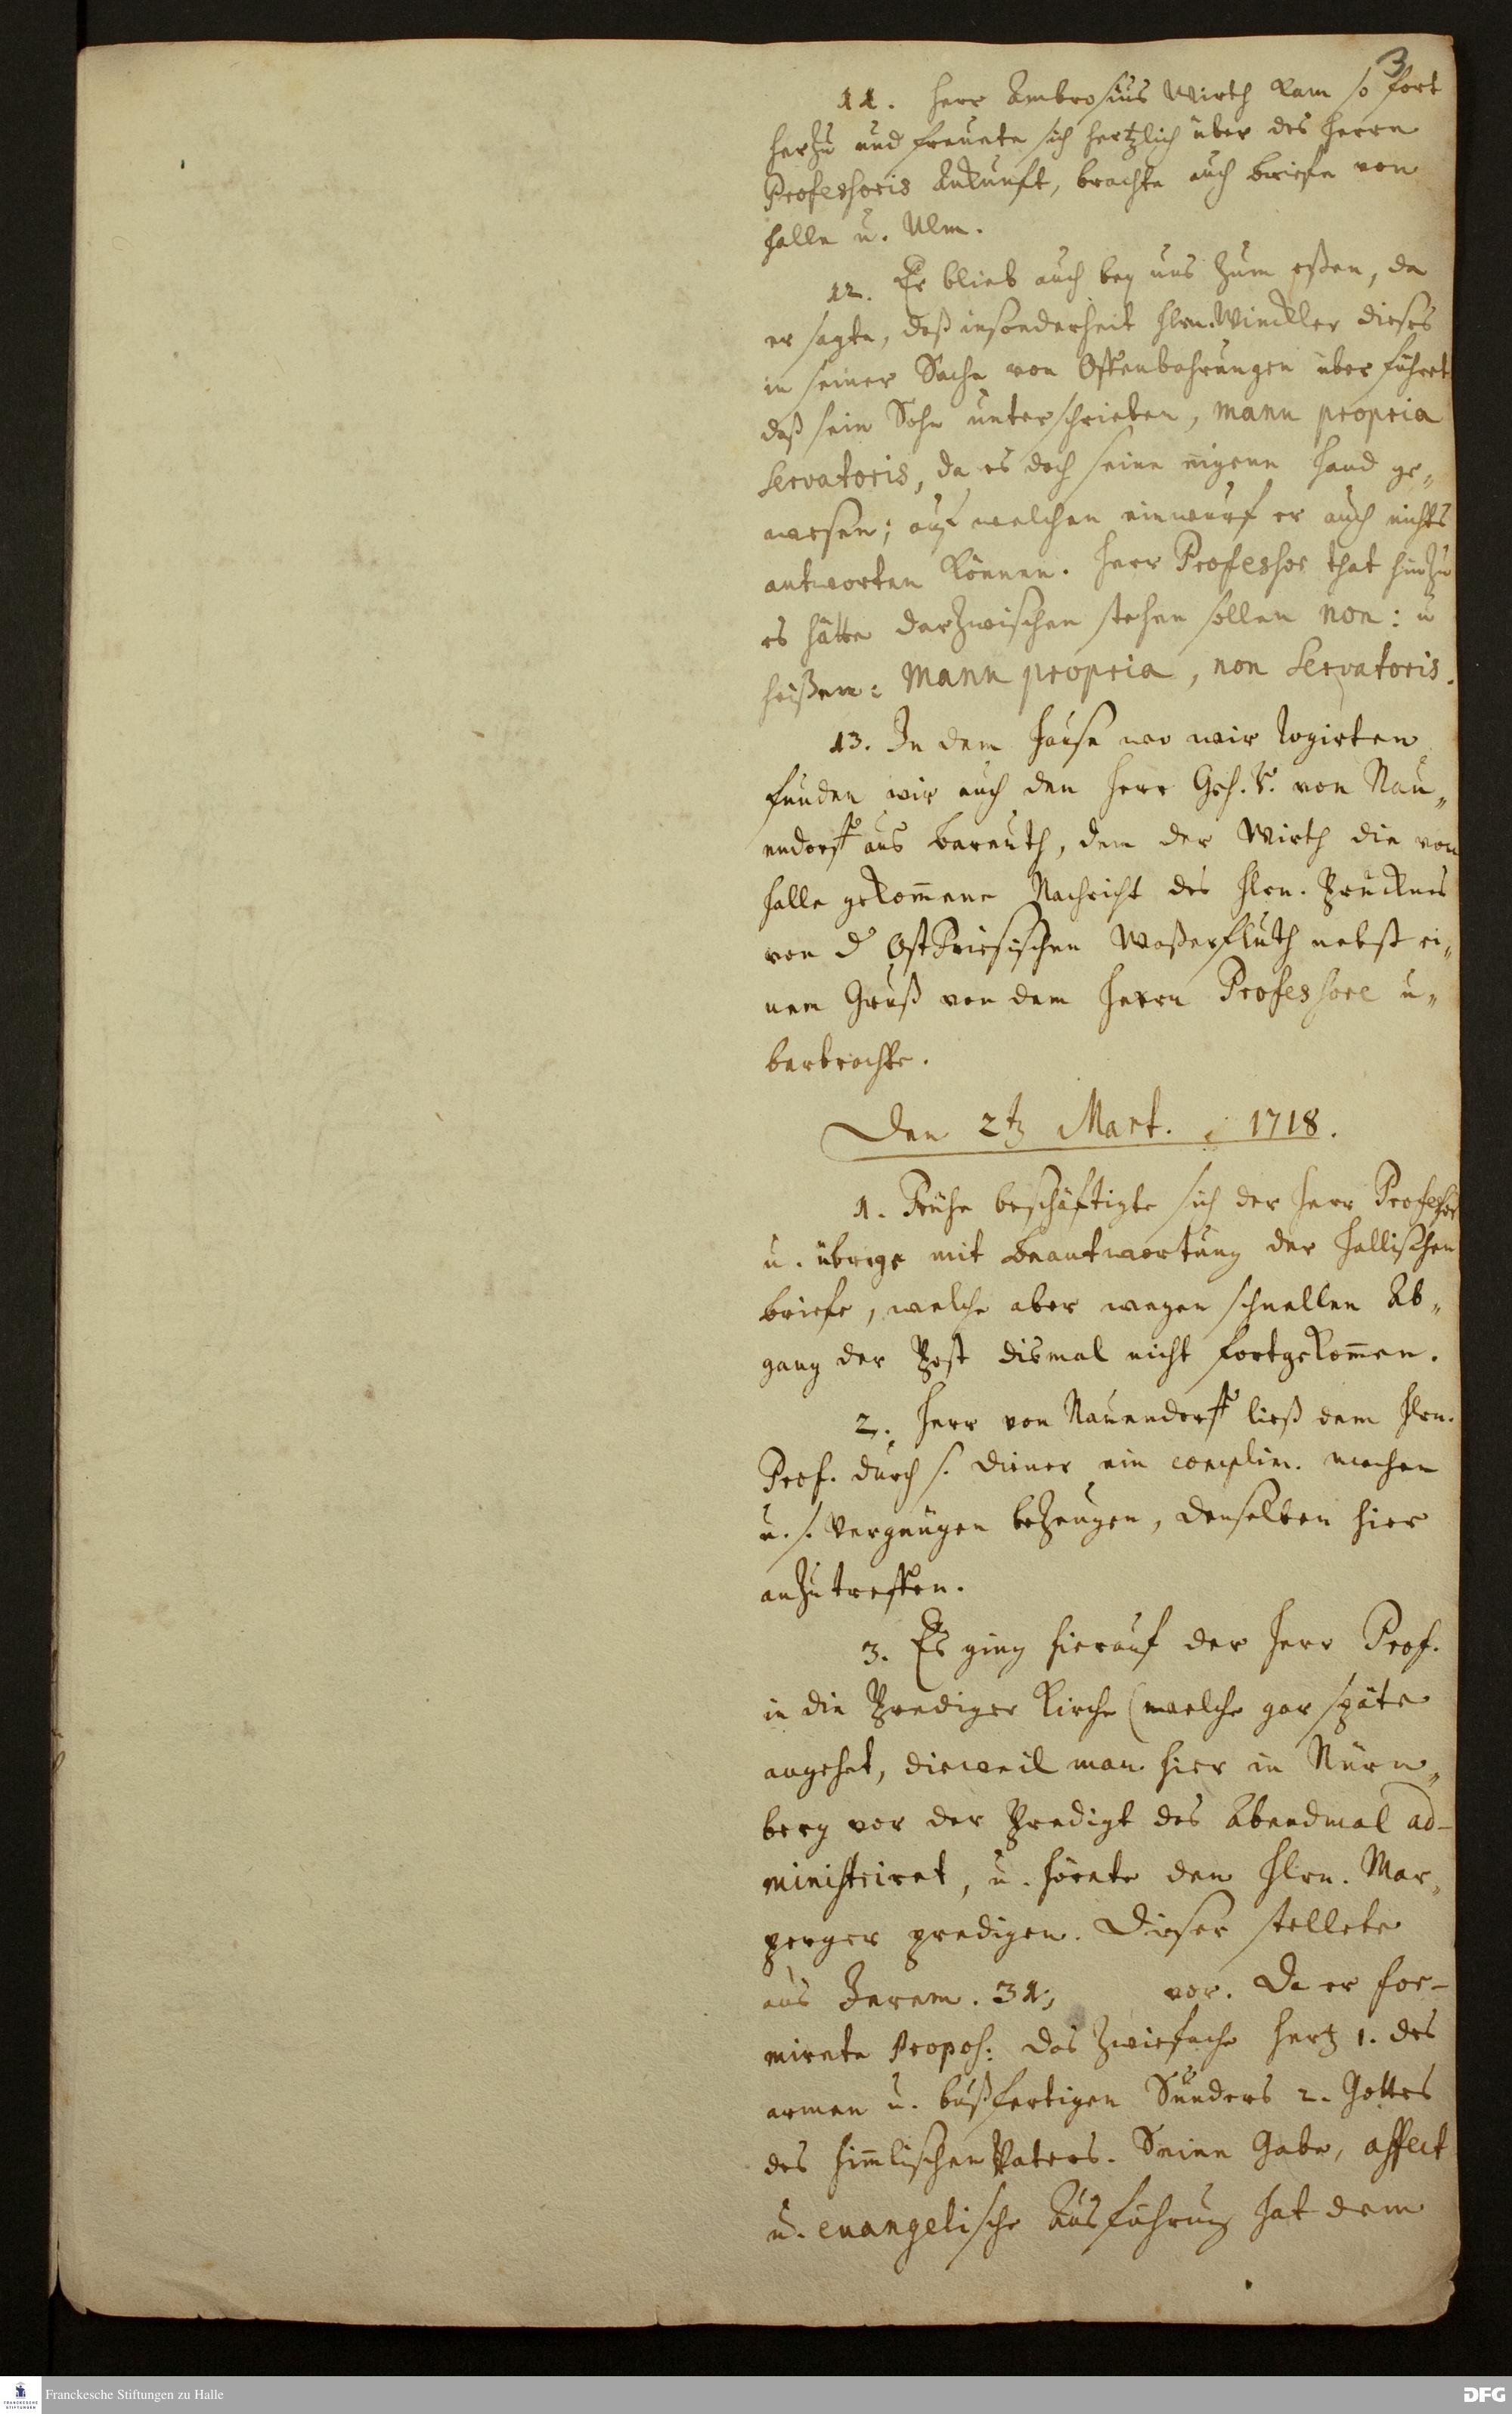 3
11. Herr Ambrosius Wirth kam so fort
herzu und freuete sich hertzlich über des Herrn
Professoris Ankunft, brachte auch briefe von
Halle u. Ulm.
12. Er blieb auch bey uns zum eßen, da
er sagte, daß insonderheit Hrn. Winckler dieses
in seiner Sache von Offenbahrungen überführet
daß sein Sohn unterschrieben, manu propria
Servatoris, da es doch seine eigene Hand ge„
wesen; auf welchen einwurf er auch nichts
antworten können. Herr Professor that hinzu
es hätte darzwischen stehen sollen non: u
heißen: Manu propria, non Servatoris.
13. In dem Hause wo wir logirten
funden wir auch den Herr Geh. R. von Nau„
endorff aus bareuth, dem der Wirth die von
Halle gekom̄ene Nachricht des Hrn.
von d Ostfriesischen Waßerfluth nebst ei„
nem Gruß von dem Herrn Professore ü„
berbrachte.
Den 2t. Mart. 1718.
1. Frühe beschäftigte sich der Herr Professor
u. übrige mit beantwortung der Hallischen
briefe, welche aber wegen schnellen Ab„
gang der Post dismal nicht fortgekom̄en.
2. Herr von Nauendorff ließ dem Hrn.
Prof. durch s. diener ein complim. machen
u. s. Vergnügen bezeugen, denselben hier
anzutreffen.
3. Es ging hierauf der Herr Prof.
in die Prediger Kirche (welche gar späte
angehet, dieweil man hier in Nürn„
berg vor der Predigt das Abendmal ad-
ministriret, u. hörete den Hrn. Mar„
perger predigen. Dieser stellete
aus Jerem. 31, vor. Da er for-
mirete Propos: das zwiefache Hertz 1. des
armen u. bußfertigen Sünders 2. Gottes
des him̄lischen Vaters. Seine Gabe, affect
u. evangelische Ausführung hat dem
Franckesche Stiftungen zu Halle
FRANCKESCHE
STIFTUNGEN
DFG